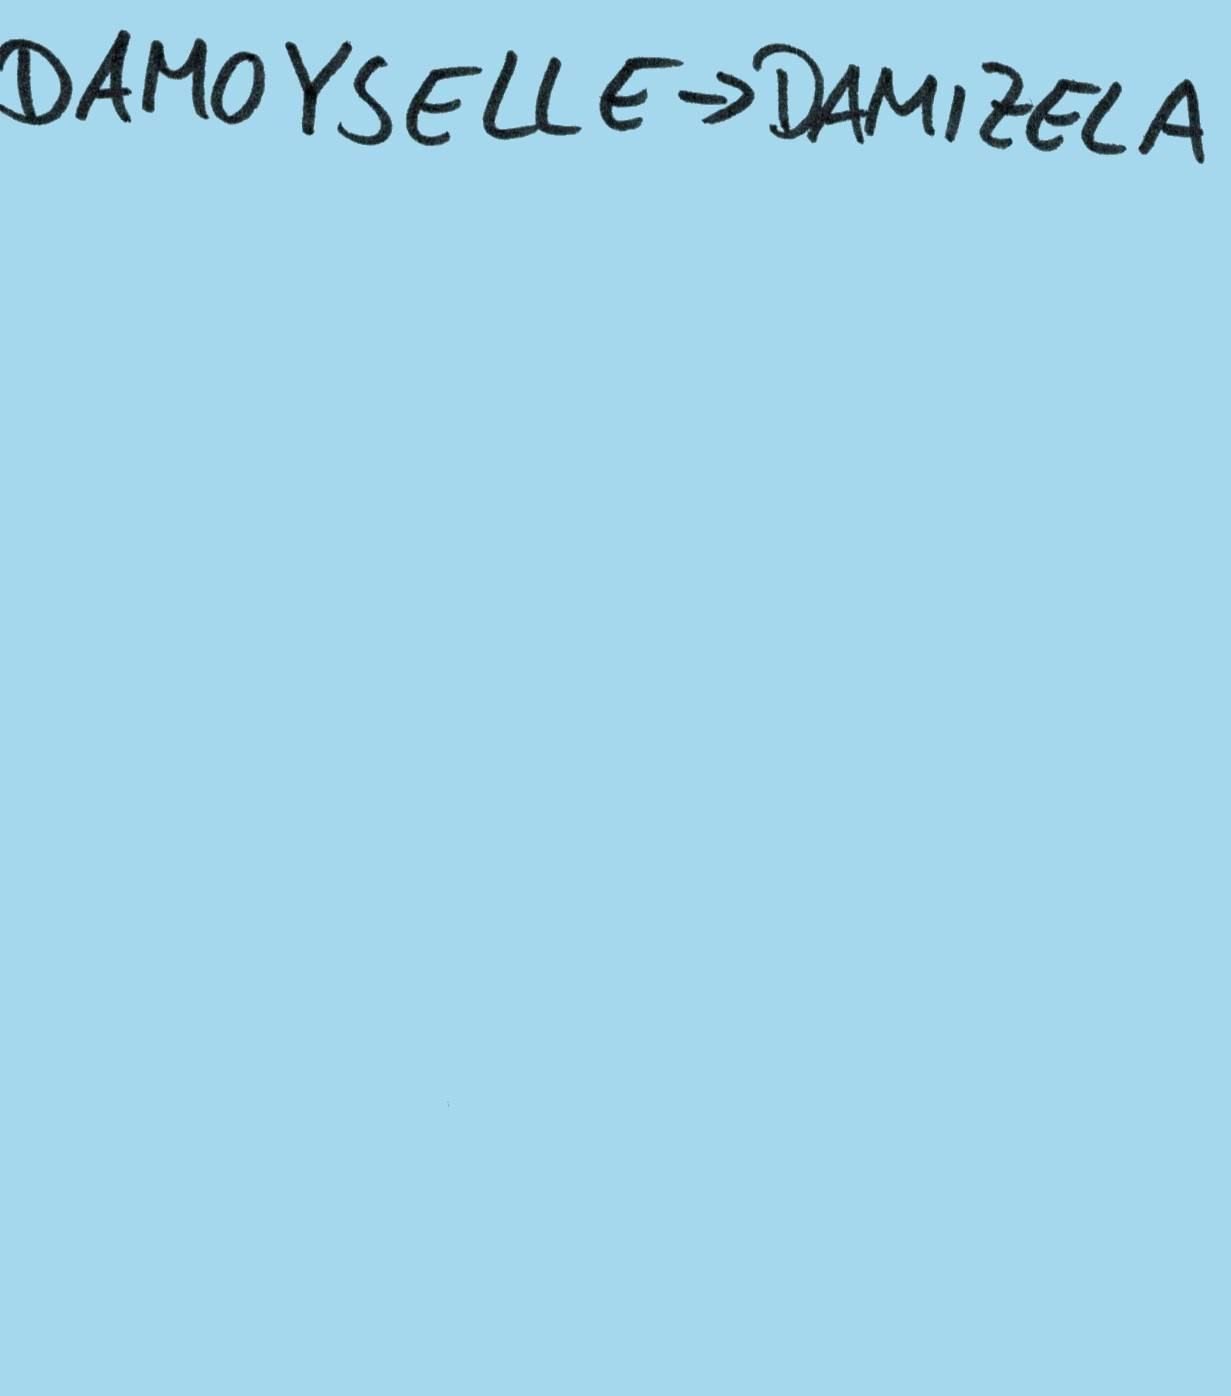 DAMOYSELLE→DAMIZELA